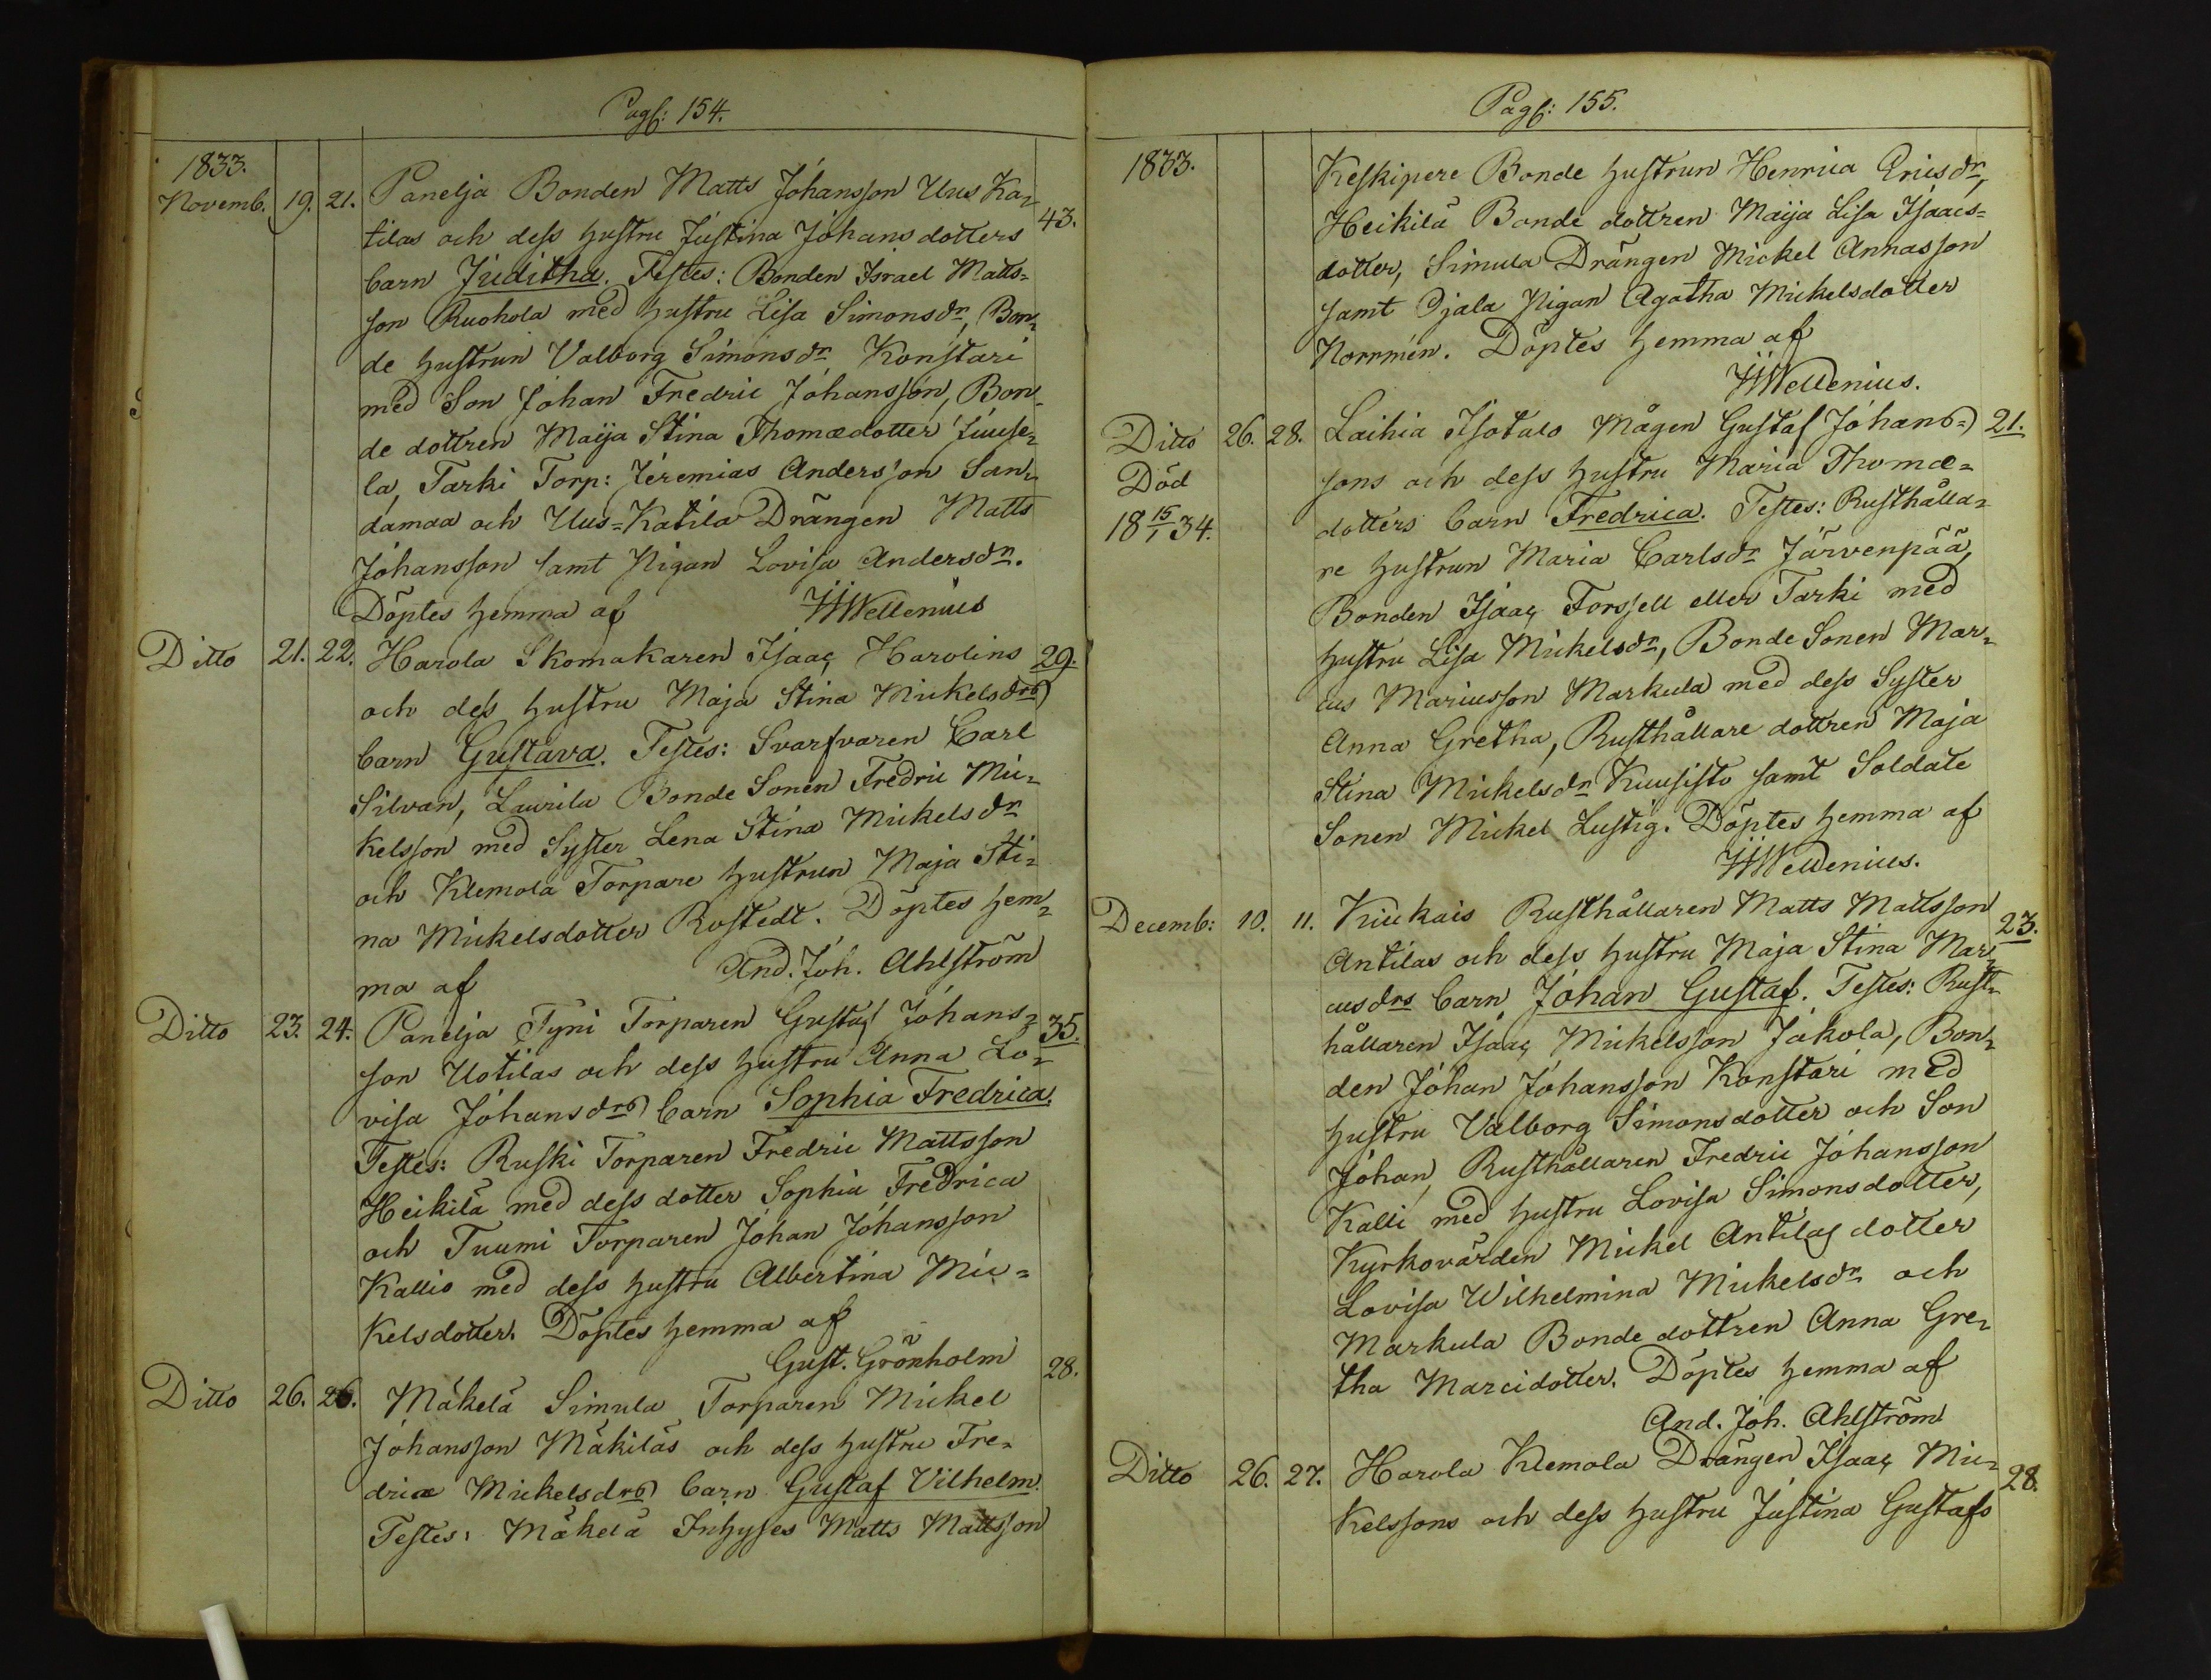 Pag: 154.
1833.
Novemb. 19. 21. Panelja Bonden Matts Johansson Uus Ka=
tilas och dess hustru Justina Johansdotters 43.
barn Juditha. Testes: Bonden Israel Matts=
son Ruohola med hustru Lisa Simonsdr, Bon=
de hustrun Valborg Simonsdr Konstari
med Son Johan Fredric Johansson, Bon=
de dottren Maija Stina Thomædotter Juuse=
la, Tarki Torp: Jeremias Andersson San=
damaa och Uus=Katila Drängen Matts
Johansson samt Pigan Lovisa Andersdr.
Döptes hemma af Wellenius
Ditto 21. 22. Harola Skomakaren Isaac Harolins 29.
och dess hustru Maja Stina Mickelsdrs
barn Gustava. Testes: Svarfvaren Carl
Silvan, Laurila Bonde Sonen Fredric Mic=
kelsson med Syster Lena Stina Mickelsdr
och Klemola Torpare hustrun Maja Sti=
na Mickelsdotter Rostedt. Döptes hem=
ma af And. Joh. Ahlström
Ditto 23. 24. Panelja Tyni Torparen Gustaf Johans= 35.
son Uotilas och dess hustru Anna Lo=
visa Johansdrs barn Sophia Fredrica.
Testes: Ruski Torparen Fredric Mattsson
Heikilä med dess dotter Sophia Fredrica
och Tuumi Torparen Johan Johansson
Kallio med dess hustru Albertina Mic=
kelsdotter. Döptes hemma af
Gust. Grönholm
Ditto 26. 26. Mäkelä Simula Torparen Mickel 28.
Johansson Mäkiläs och dess hustru Fre=
dricæ Mickelsdrs barn Gustaf Vilhelm.
Testes: Mäkelä Inhyses Matts Mattsson
Pag: 155.
1833. Keskipere Bonde hustrun Henrica Ericsdr,
Heikilä Bonde dottren Maija Lisa Isaacs=
dotter, Simula Drängen Mickel Annasson
samt Ojala Pigan Agatha Mickelsdotter
Norrmén. Döptes hemma af
Wellenius.
Ditto 26. 28. Laihia Isotalo Mågen Gustaf Johans= 21.
Död sons och dess hustru Maria Thomæ=
18 15/1 34. dotters barn Fredrica. Testes: Rusthålla=
re hustrun Maria Carlsdr Järvenpää,
Bonden Isaac Forssell eller Tarki med
hustru Lisa Mickelsdr, Bonde Sonen Mar=
cus Marcusson Markula med dess Syster
Anna Gretha, Rusthållare dottren Maja
Stina Mickelsdr Kuusisto samt Soldate
Sonen Mickel Lustig. Döptes hemma af
Wellenius.
Decemb: 10. 11. Kiukais Rusthållaren Matts Mattsson 23.
Antilas och dess hustru Maja Stina Mar=
cusdrs barn Johan Gustaf. Testes: Rust=
hållaren Isaac Mickelsson Jakola, Bon=
den Johan Johansson Konstari med
hustru Valborg Simonsdotter och Son
Johan, Rusthållaren Fredric Johansson
Kalli med hustru Lovisa Simonsdotter,
Kyrkovärden Mickel Antilas dotter
Lovisa Wilhelmina Mickelsdr och
Markula Bonde dottren Anna Gre=
tha Marcidotter. Döptes hemma af
And. Joh. Ahlström
Ditto 26. 27. Harola Klemola Drängen Isaac Mic= 28.
kelssons och dess hustru Justina Gustafs